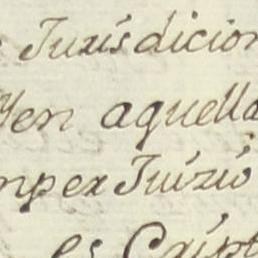 Jurisdicion
Yen aquella
nper Juizio
es Cript